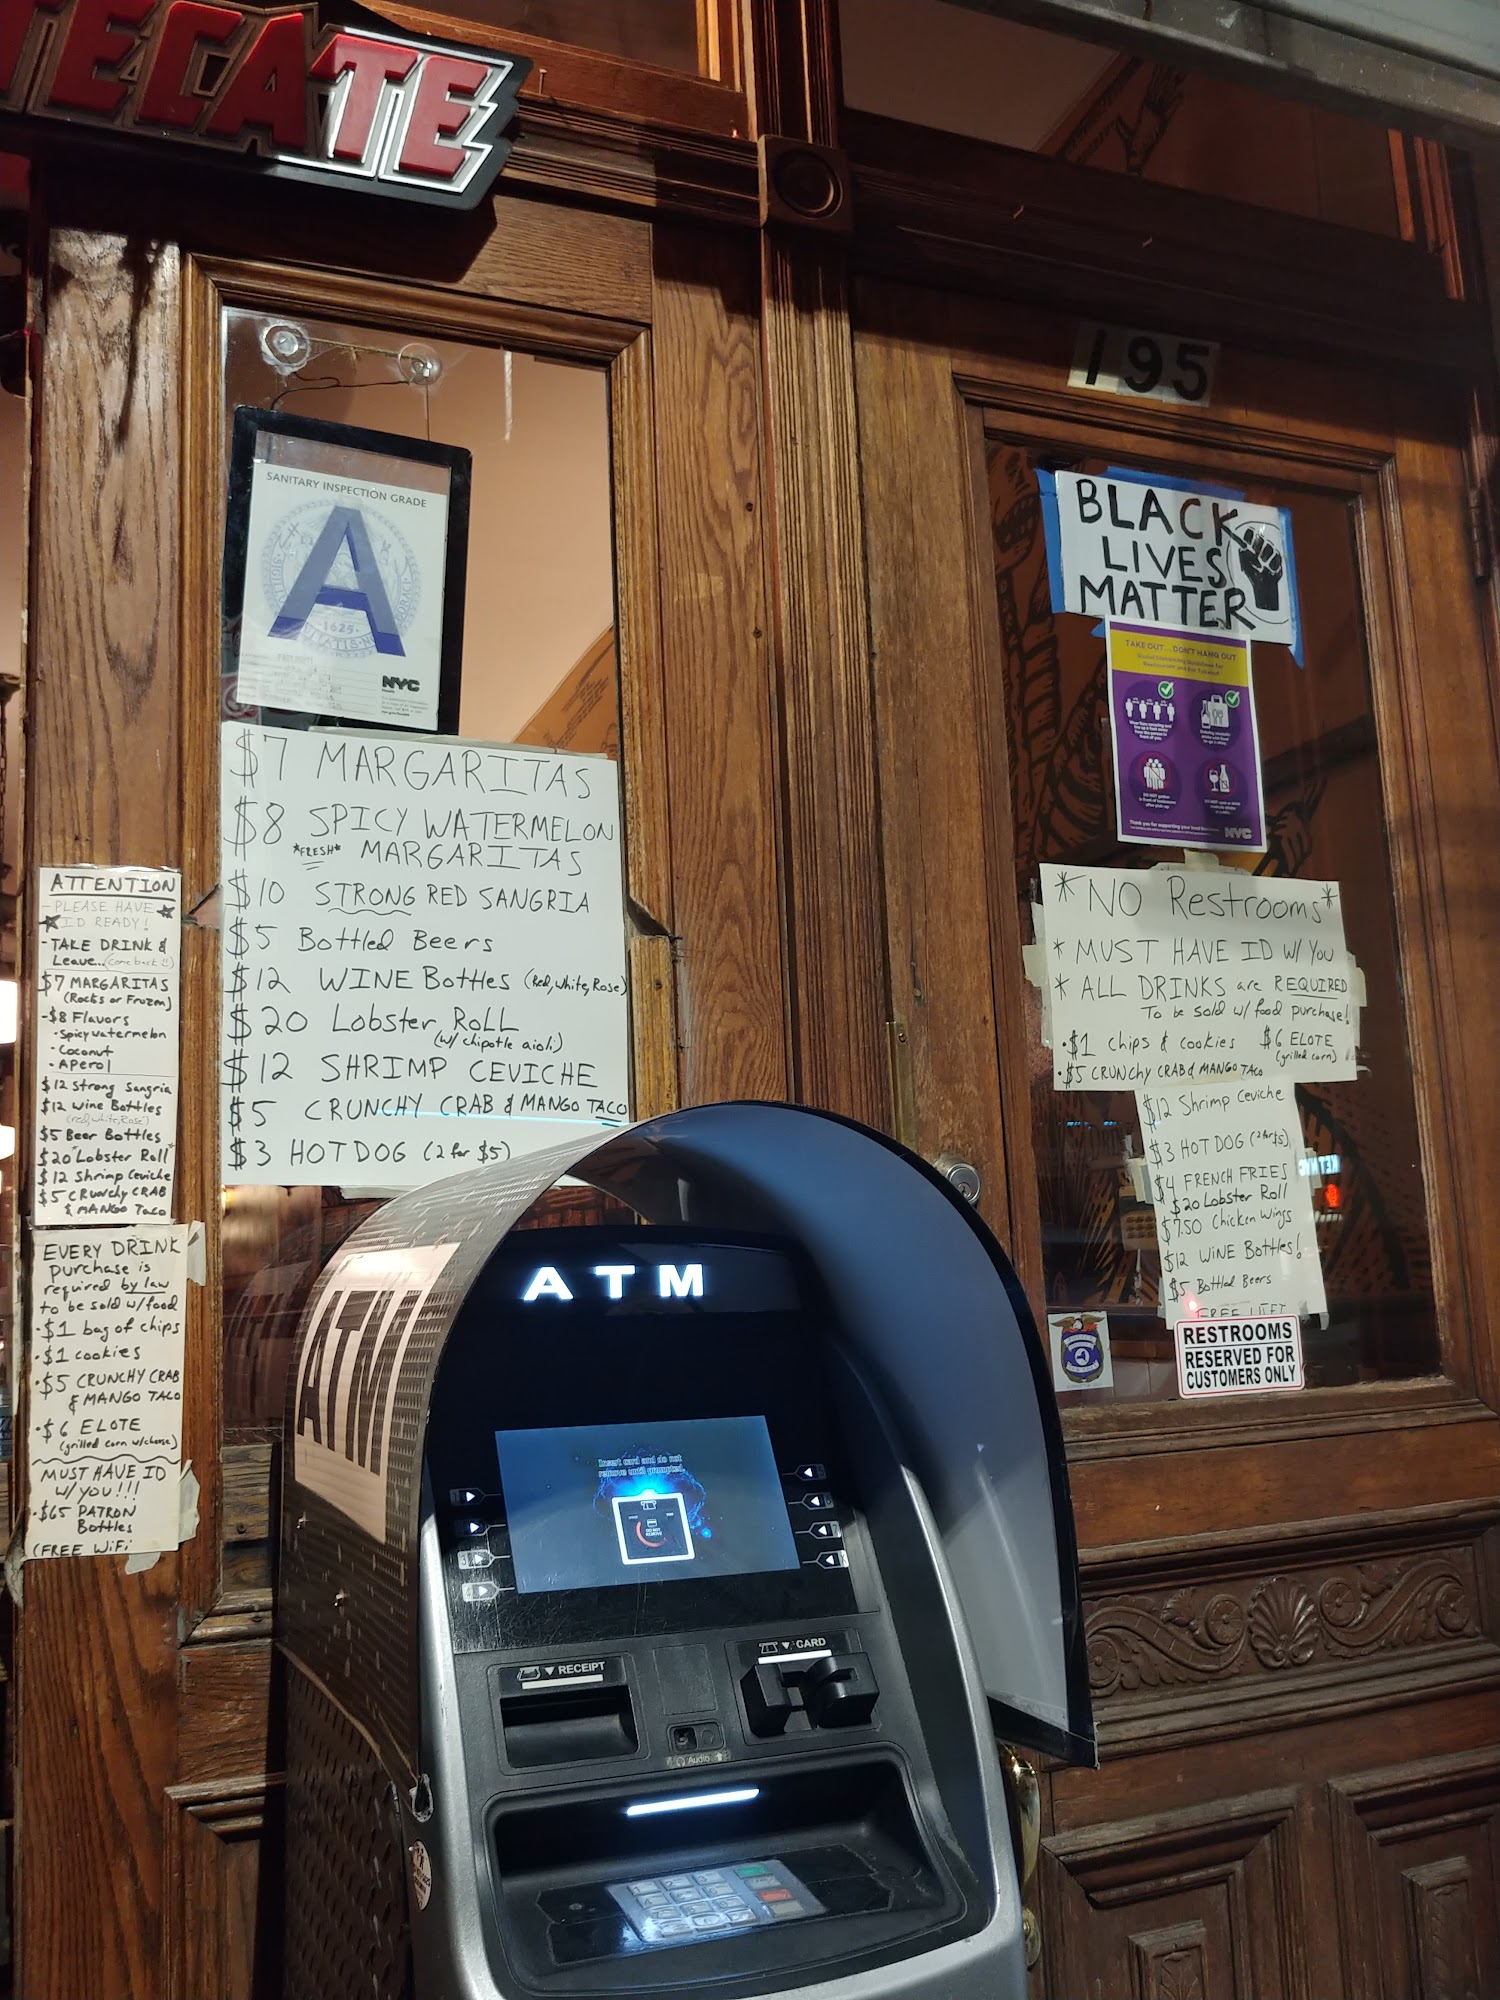 TECATE
195
SANITARY INSPECTION GRADE
A
1625
NYC
$7 MARGARITAS
$8 SPICY WATERMELON
*FRESH* MARGARITAS
$10 STRONG RED SANGRIA
$5 Bottled Beers
$12 WINE Bottles (Red, White, Rose)
$20 Lobster Roll
(w/ chipotle aioli)
$12 SHRIMP CEVICHE
$5 CRUNCHY CRAB & MANGO TACO
$3 HOT DOG (2 for $5)
ATTENTION
- PLEASE HAVE
ID READY!
- TAKE DRINK &
Leave... (come back :))
$7 MARGARITAS
(Rocks or Frozen)
- $8 Flavors
- Spicy watermelon
- Coconut
- Aperol
$12 Strong Sangria
$12 Wine Bottles
(red, white, Rose)
$5 Beer Bottles
$20 Lobster Roll
$12 Shrimp Ceviche
$5 CRUNCHY CRAB
& MANGO TACO
EVERY DRINK
purchase is
required by law
to be sold w/food
- $1 bag of chips
- $1 cookies
- $5 CRUNCHY CRAB
& MANGO TACO
- $6 ELOTE
(grilled corn w/cheese)
MUST HAVE ID
w/ YOU!!!
- $65 PATRON
Bottles
(FREE WiFi
BLACK
LIVES
MATTER
TAKE OUT... DON'T HANG OUT
Social Distancing Guidelines for
Restaurant and Bar Takeout
Thank you for supporting your local
NYC
*NO Restrooms*
* MUST HAVE ID w/ You
* ALL DRINKS are REQUIRED
To be sold w/ food purchase!
- $1 chips & cookies $6 ELOTE
(grilled corn)
- $5 CRUNCHY CRAB & MANGO TACO
$12 Shrimp Ceviche
$3 HOT DOG (2 for $5)
$4 FRENCH FRIES
$20 Lobster Roll
$7.50 Chicken Wings
$12 WINE Bottles!
$5 Bottled Beers
RESTROOMS
RESERVED FOR
CUSTOMERS ONLY
ATM
ATM
Insert card and do not
remove until prompted.
DO NOT
REMOVE
RECEIPT
CARD
Audio